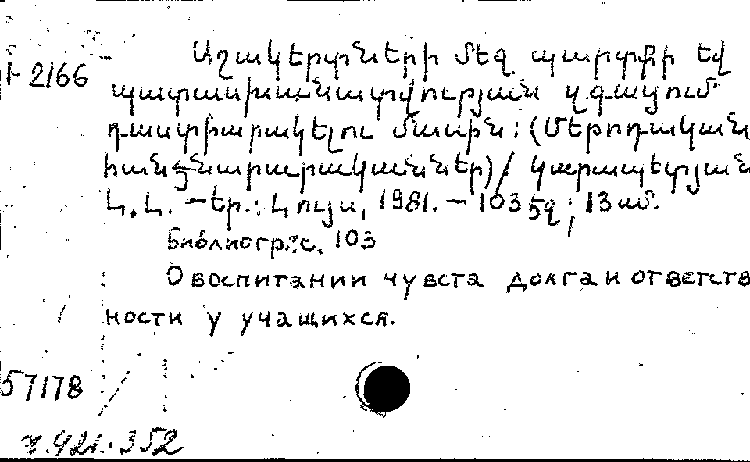 Աշակերտների մեջ պարտքի եվ
Ի 2166
պատասխանատվության զգացում
դաստիարակելու մասին: (Մեթոդական
հանձնարարականներ)/ Կարապետյան
Լ. Հ. – Եր.: Լույս, 1981. – 103 էջ; 13 սմ.
Библиогр.: с. 103
О воспитании чувста долга и ответств
ности у учащихся.
57178
421.352